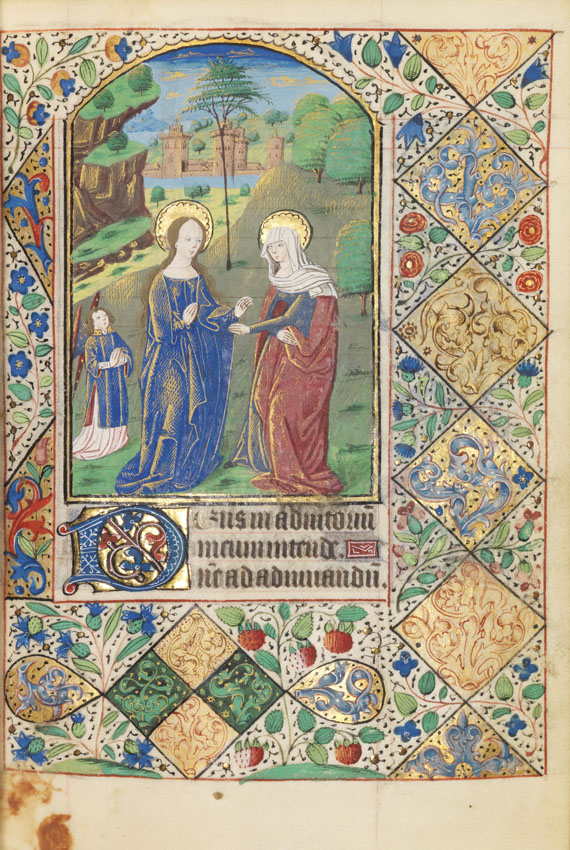 Deus in adiutoriū
meum intende
Dn̄e ad adiuuandū.